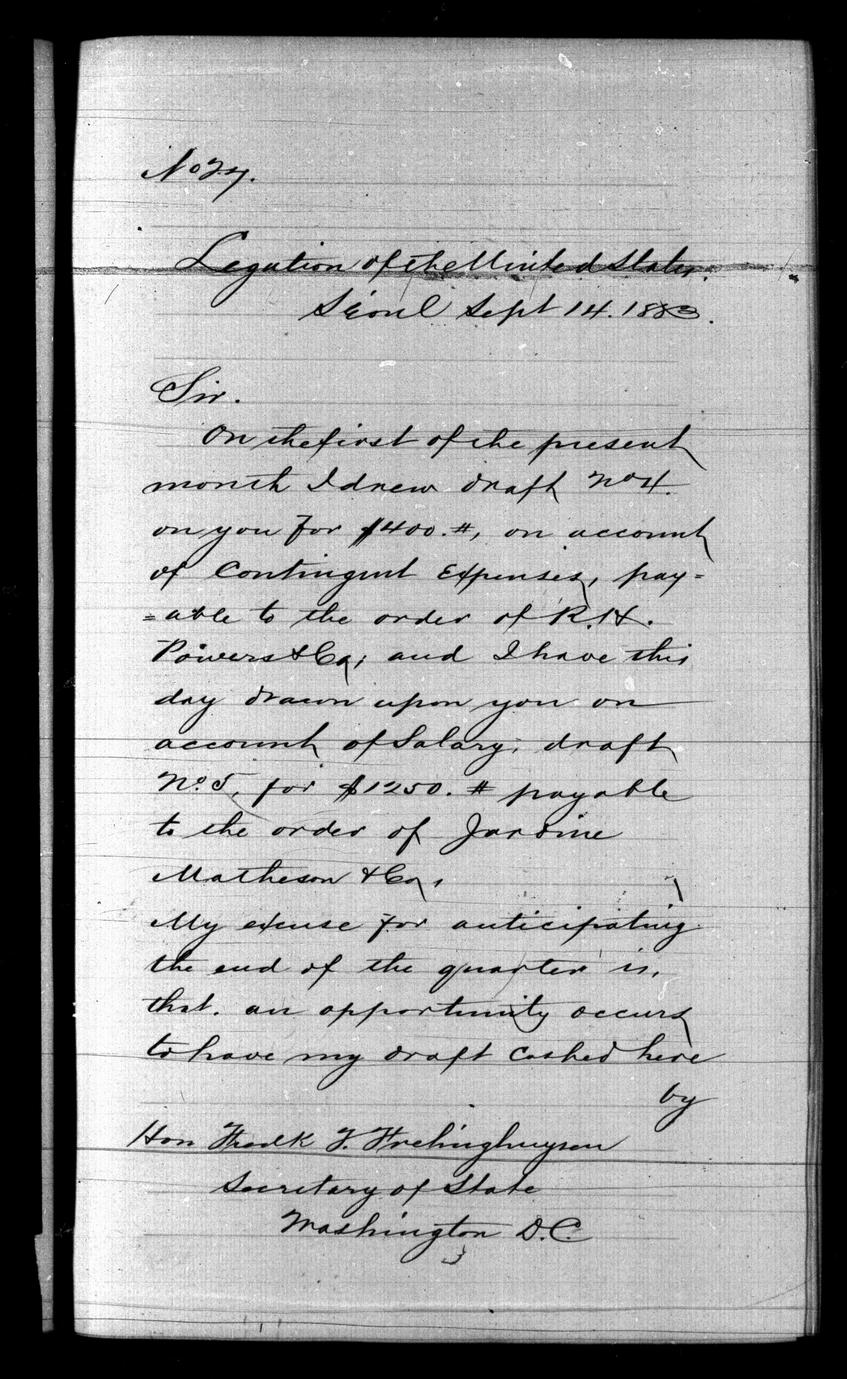 No 27.
Legation of the United States.
Séoul Sept 14. 1883.
Sir.
On the first of the present
month I drew draft No 4.
on you for $400.#, on account
of Contingent Expenses, pay=
=able to the order of R.H.
Powers & Co; and I have this
day drawn upon you on
account of Salary; draft
No. 5, for $1250.# payable
to the order of Jardine
Matheson & Co,
My excuse for anticipating
the end of the quarter is,
that. an opportunity occurs
to have my draft cashed here
by
Hon Fredk T. Frelinghuysen
Secretary of State
Washington D.C.